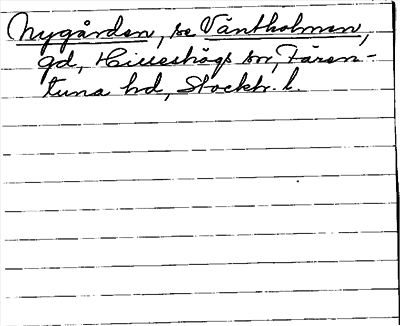 Nygården, se Väntholmen,
gd, Hilleshögs sn, Fären-
tuna hd, Stockh. l.